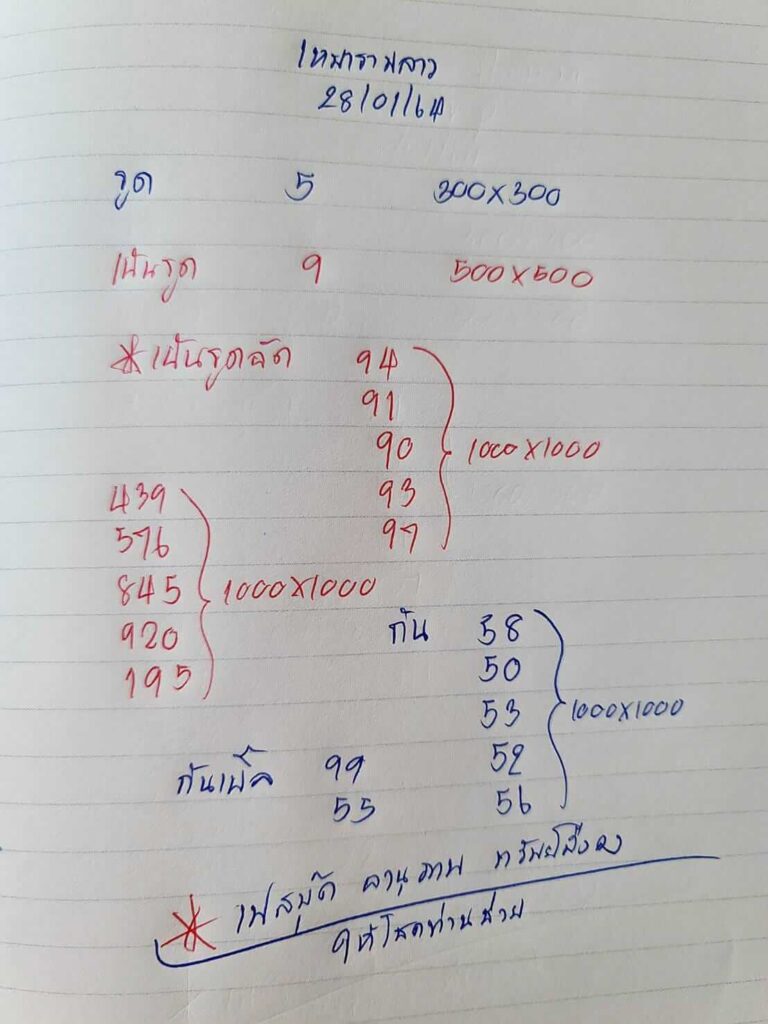 เหมารามลาว
28/01/64
รูด 5 300x300
เน้นรูด 9 500x500
* เน้นรูดจัด 94
91
90
93
97
1000x1000
439
576
845
920
195
1000x1000
กัน 58
50
53
52
56
1000x1000
กันเบิ้ล 99
55
* เฟสบุ๊ค อานุภาพ
ให้โชคท่านช่วย